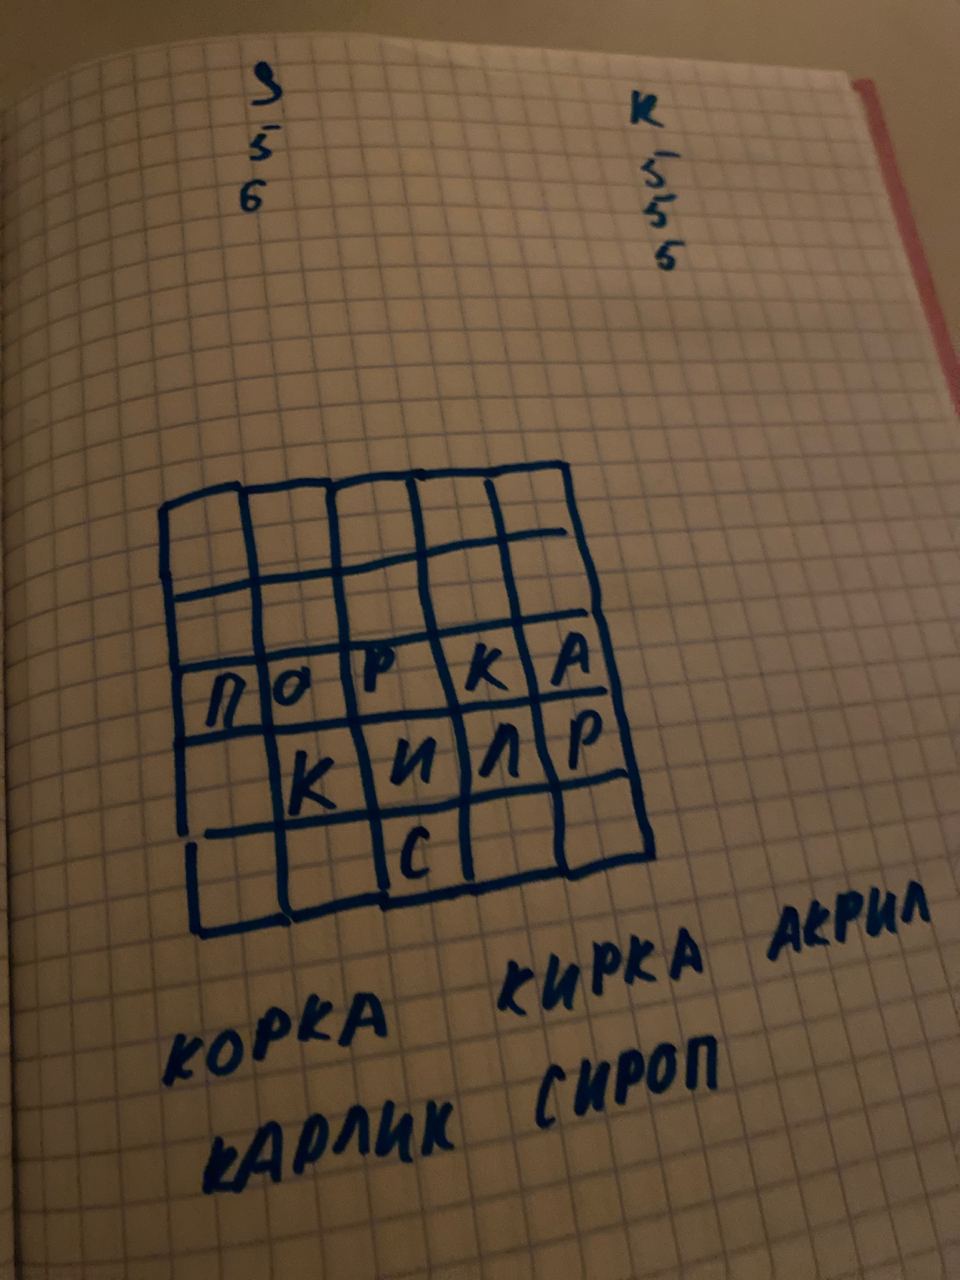 S K
5 5
6 5
5
П О Р К А
К И Л Р
С
КОРКА КИРКА АКРИЛ
КАРЛИК СИРОП